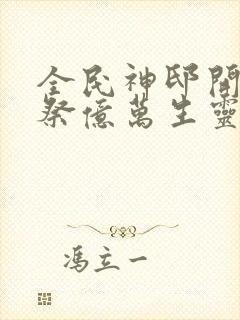 全民神邸開
祭億萬生靈
馮立一